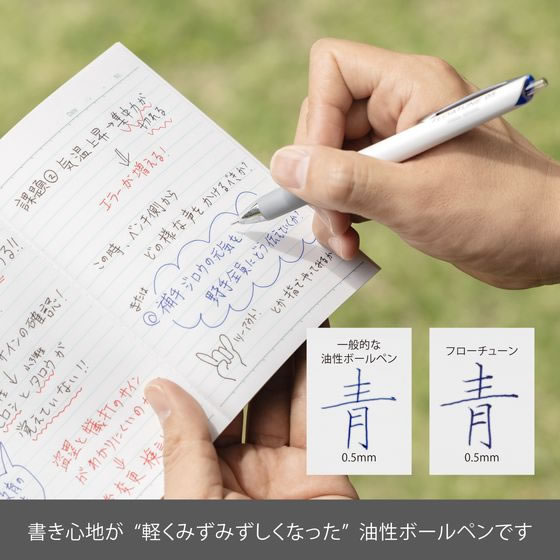 課題② 気温上昇→集中力が
切れる
↓
エラーが増える!
この時、ベンチ側から
どの様な声をかけるべきか?
または
◎補手ジロウの元気を
野手全員にどう伝えていくか?
ツーアウト!
とか指でやってみるか
る!!
サインの確認!
タロウが
覚えていない!!
盗塁と犠打のサイン
がわかりにくいので
↓
一般的な
油性ボールペン
青
0.5mm
フローチューン
青
0.5mm
書き心地が“軽くみずみずしくなった”油性ボールペンです